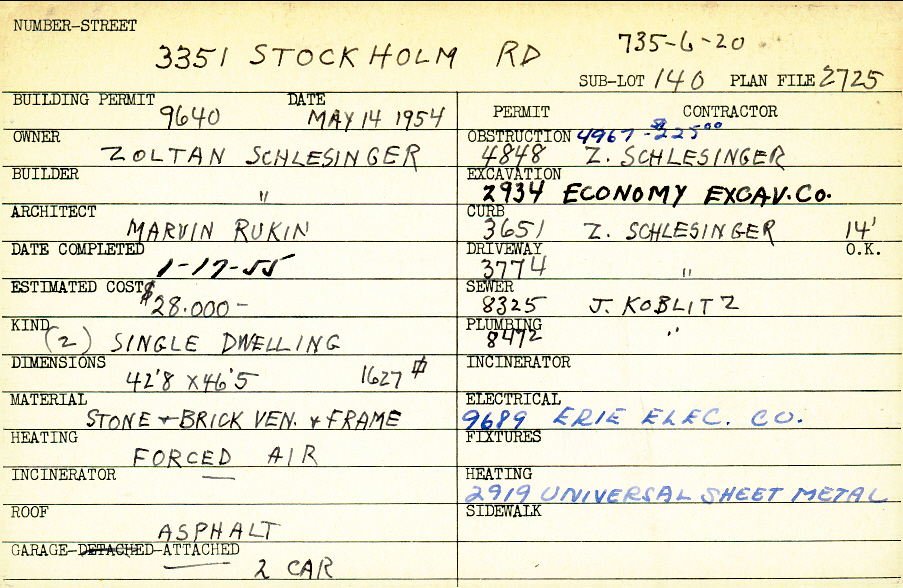 NUMBER-STREET
3351 STOCKHOLM RD 735-6-20
SUB-LOT 140 PLAN FILE 2725
BUILDING PERMIT 9640 DATE MAY 14 1954
OWNER ZOLTAN SCHLESINGER
BUILDER "
ARCHITECT MARVIN RUKIN
DATE COMPLETED 1-17-55
ESTIMATED COST $28.000-
KIND (2) SINGLE DWELLING
DIMENSIONS 42'8 X 46'5 1627 ⌗
MATERIAL STONE + BRICK VEN. + FRAME
HEATING FORCED AIR
INCINERATOR —
ROOF ASPHALT
GARAGE-DETACHED-ATTACHED 2 CAR
PERMIT CONTRACTOR
OBSTRUCTION 4967-$225⁰⁰
4848 Z. SCHLESINGER
EXCAVATION
2934 ECONOMY EXCAV. CO.
CURB
3651 Z. SCHLESINGER 14'
DRIVEWAY O.K.
3774 "
SEWER
8325 J. KOBLITZ
PLUMBING
8472 "
INCINERATOR
ELECTRICAL
9689 ERIE ELEC. CO.
FIXTURES
HEATING
2919 UNIVERSAL SHEET METAL
SIDEWALK